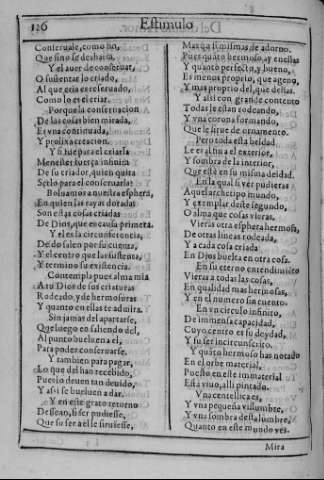 126
Estimulo
Conserualo, como no,
Que sino se deshazia,
Y el auer de conseruar,
O sustentar lo criado,
Al que cria es reseruado,
Como lo es el criar.
Porque la conseruacion
De las cosas bien mirada,
Es vna continuada,
Y prolixa creacion.
Y si fue para el criarla
Menester fuerça infinita
De su criador, quien quita
Serlo para el conseruarla?
Boluamos a nuestra esphera,
En quien las rayas doradas
Son estas cosas criadas
De Dios, que es causa primera.
Y el es la circunferencia,
De do salen por su cuenta,
Y el centro que las sustenta,
Y termino su existencia.
Contempla pues alma mia
A tu Dios de sus criaturas
Rodeado, y de hermosuras
Y quanto en ellas te admira.
Sin jamas del apartarse,
Que luego en saliendo del,
Al punto bueluen a el,
Para poder conseruarse.
Y tambien para pagar,
Lo que del han recebido,
Pues lo deuen tan deuido,
Y assi se bueluen a dar.
Y en este grato retorno
Dessean, si ser pudiesse,
Que su ser a el le siruiesse,
Mas que a si mismas de adorno.
Pues quanto hermoso ay en ellas
Y quanto perfecto, y bueno,
Es menos proprio, que ageno,
Y mas proprio del, que dellas.
Y assi con grande contento
Todas le estan rodeando,
Y vna corona formando,
Que le sirue de ornamento.
Pero toda esta beldad
Le es al fin a el exterior,
Y sombra de la interior,
Que está en su misma deidad.
En la qual si ver pudieras
Aquel archetipo mundo,
Y exemplar deste segundo,
O alma que cosas vieras.
Vieras otra esphera hermosa,
De otras lineas rodeada,
Y a cada cosa criada
En Dios buelta en otra cosa.
En su eterno entendimiento
Vieras a todas las cosas,
En qualidad mas hermosas,
Y en el numero sin cuento.
En vn circulo infinito,
De immensa capacidad,
Cuyo centro es su deydad,
Y su ser incircunscrito.
Y quanto hermoso has notado
En el orbe material,
Puesto en este immaterial
Esta viuo, alli pintado.
Vna centellica es,
Y vna pequeña vislumbre,
Y vna sombra desta lumbre,
Quanto en este mundo ves.
Mira